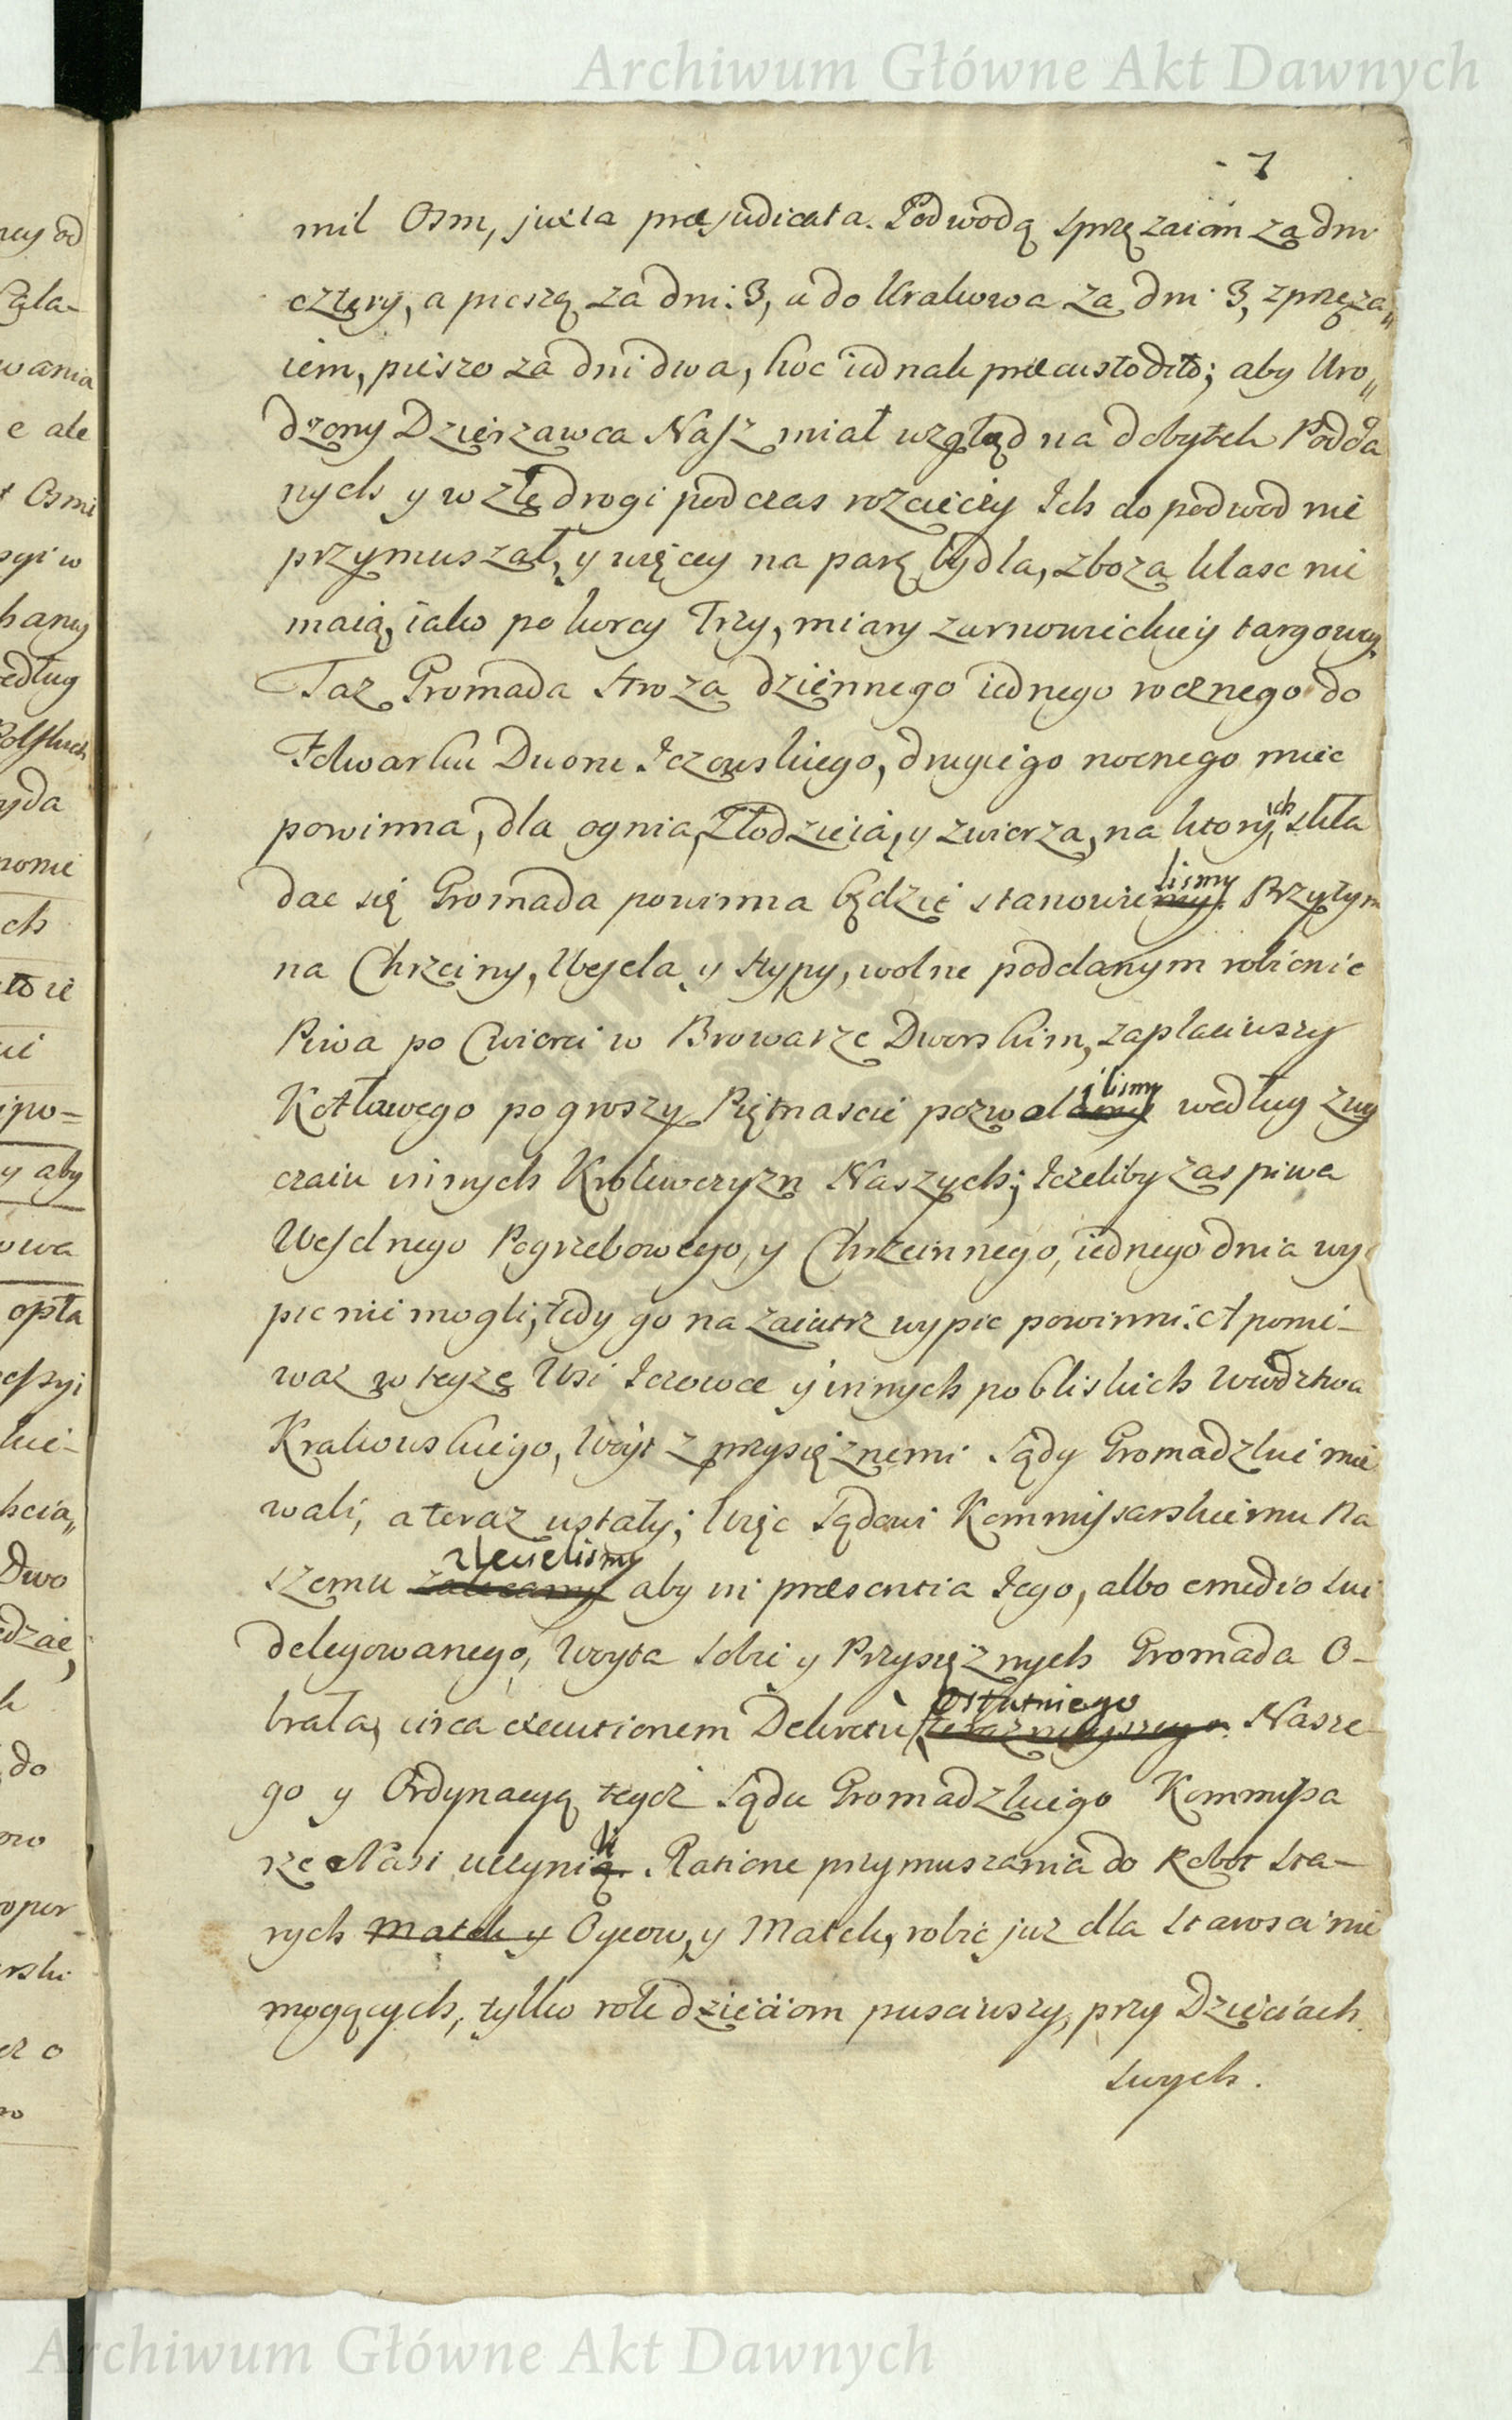 Archiwum Główne Akt Dawnych
- 7
mil Osm, juxta præjudicata. Podwodą sprzęzaiem za dni
cztery, a pieszą za dni: 3, a do Krakowa za dni 3, zprzęza„
iem, pieszo za dni dwa, hoc iednak præcustodito; aby Uro„
dzony Dzierzawca Nasz miał wzgląd na dobytek Podda
nych y w złę drogi podczas rozcieczy Ich do podwod nie
przymuszał, y więcey na parę bydła, zboza klasc nie
maią, iako po korcy Trzy, miary zarnowieckiey targowey
Taz Gromada stroza dziennego iednego rocznego do
Folwarku Dworu Jczowskiego, drugiego nocnego miec
powinna, dla ognia, Złodzieia, y zwierza, na ktorych skła
dac się Gromada powinna będzie stanowielismy. Przytym
na Chrzciny, Wesela y stypy, wolne poddanym robienie
Piwa po Cwierci w Browarze Dworskim, zapłaciwszy
Kotłowego po groszy Piętnascie pozwolilismy według zwy
czaiu innych Krolewczyzn Naszych; Jezeliby zas piwa
Weselnego Pogrzebowego, y Chrzcinnego, iednego dnia wy
pic nie mogli, tedy go na zaiutrz wypic powinni. A ponie-
waz w teyze Wsi Jczowce y innych pobliskich Wwdztwa
Krakowskiego, Woyt z przysięznemi Sądy Gromadzkie mie
wali, a teraz ustały; Więc Sądowi Kommissarskiemu Na
szemu zlecielismy aby in præsentia Jego, albo e medio sui
delegowanego, Woyta sobie y Przysięznych Gromada O-
brała, circa executionem Dekretu ostatniego Nasze
go y Ordynacyą tegoz Sądu Gromadzkiego Kommissa
rze Nasi uczynili. Ratione przymuszania do Robot sta-
rych matek y Oycow, y Matek, robic juz dla starosci nie
mogących, tylko role dzieciom pusciwszy, przy Dzieciach
swych.
Archiwum Główne Akt Dawnych